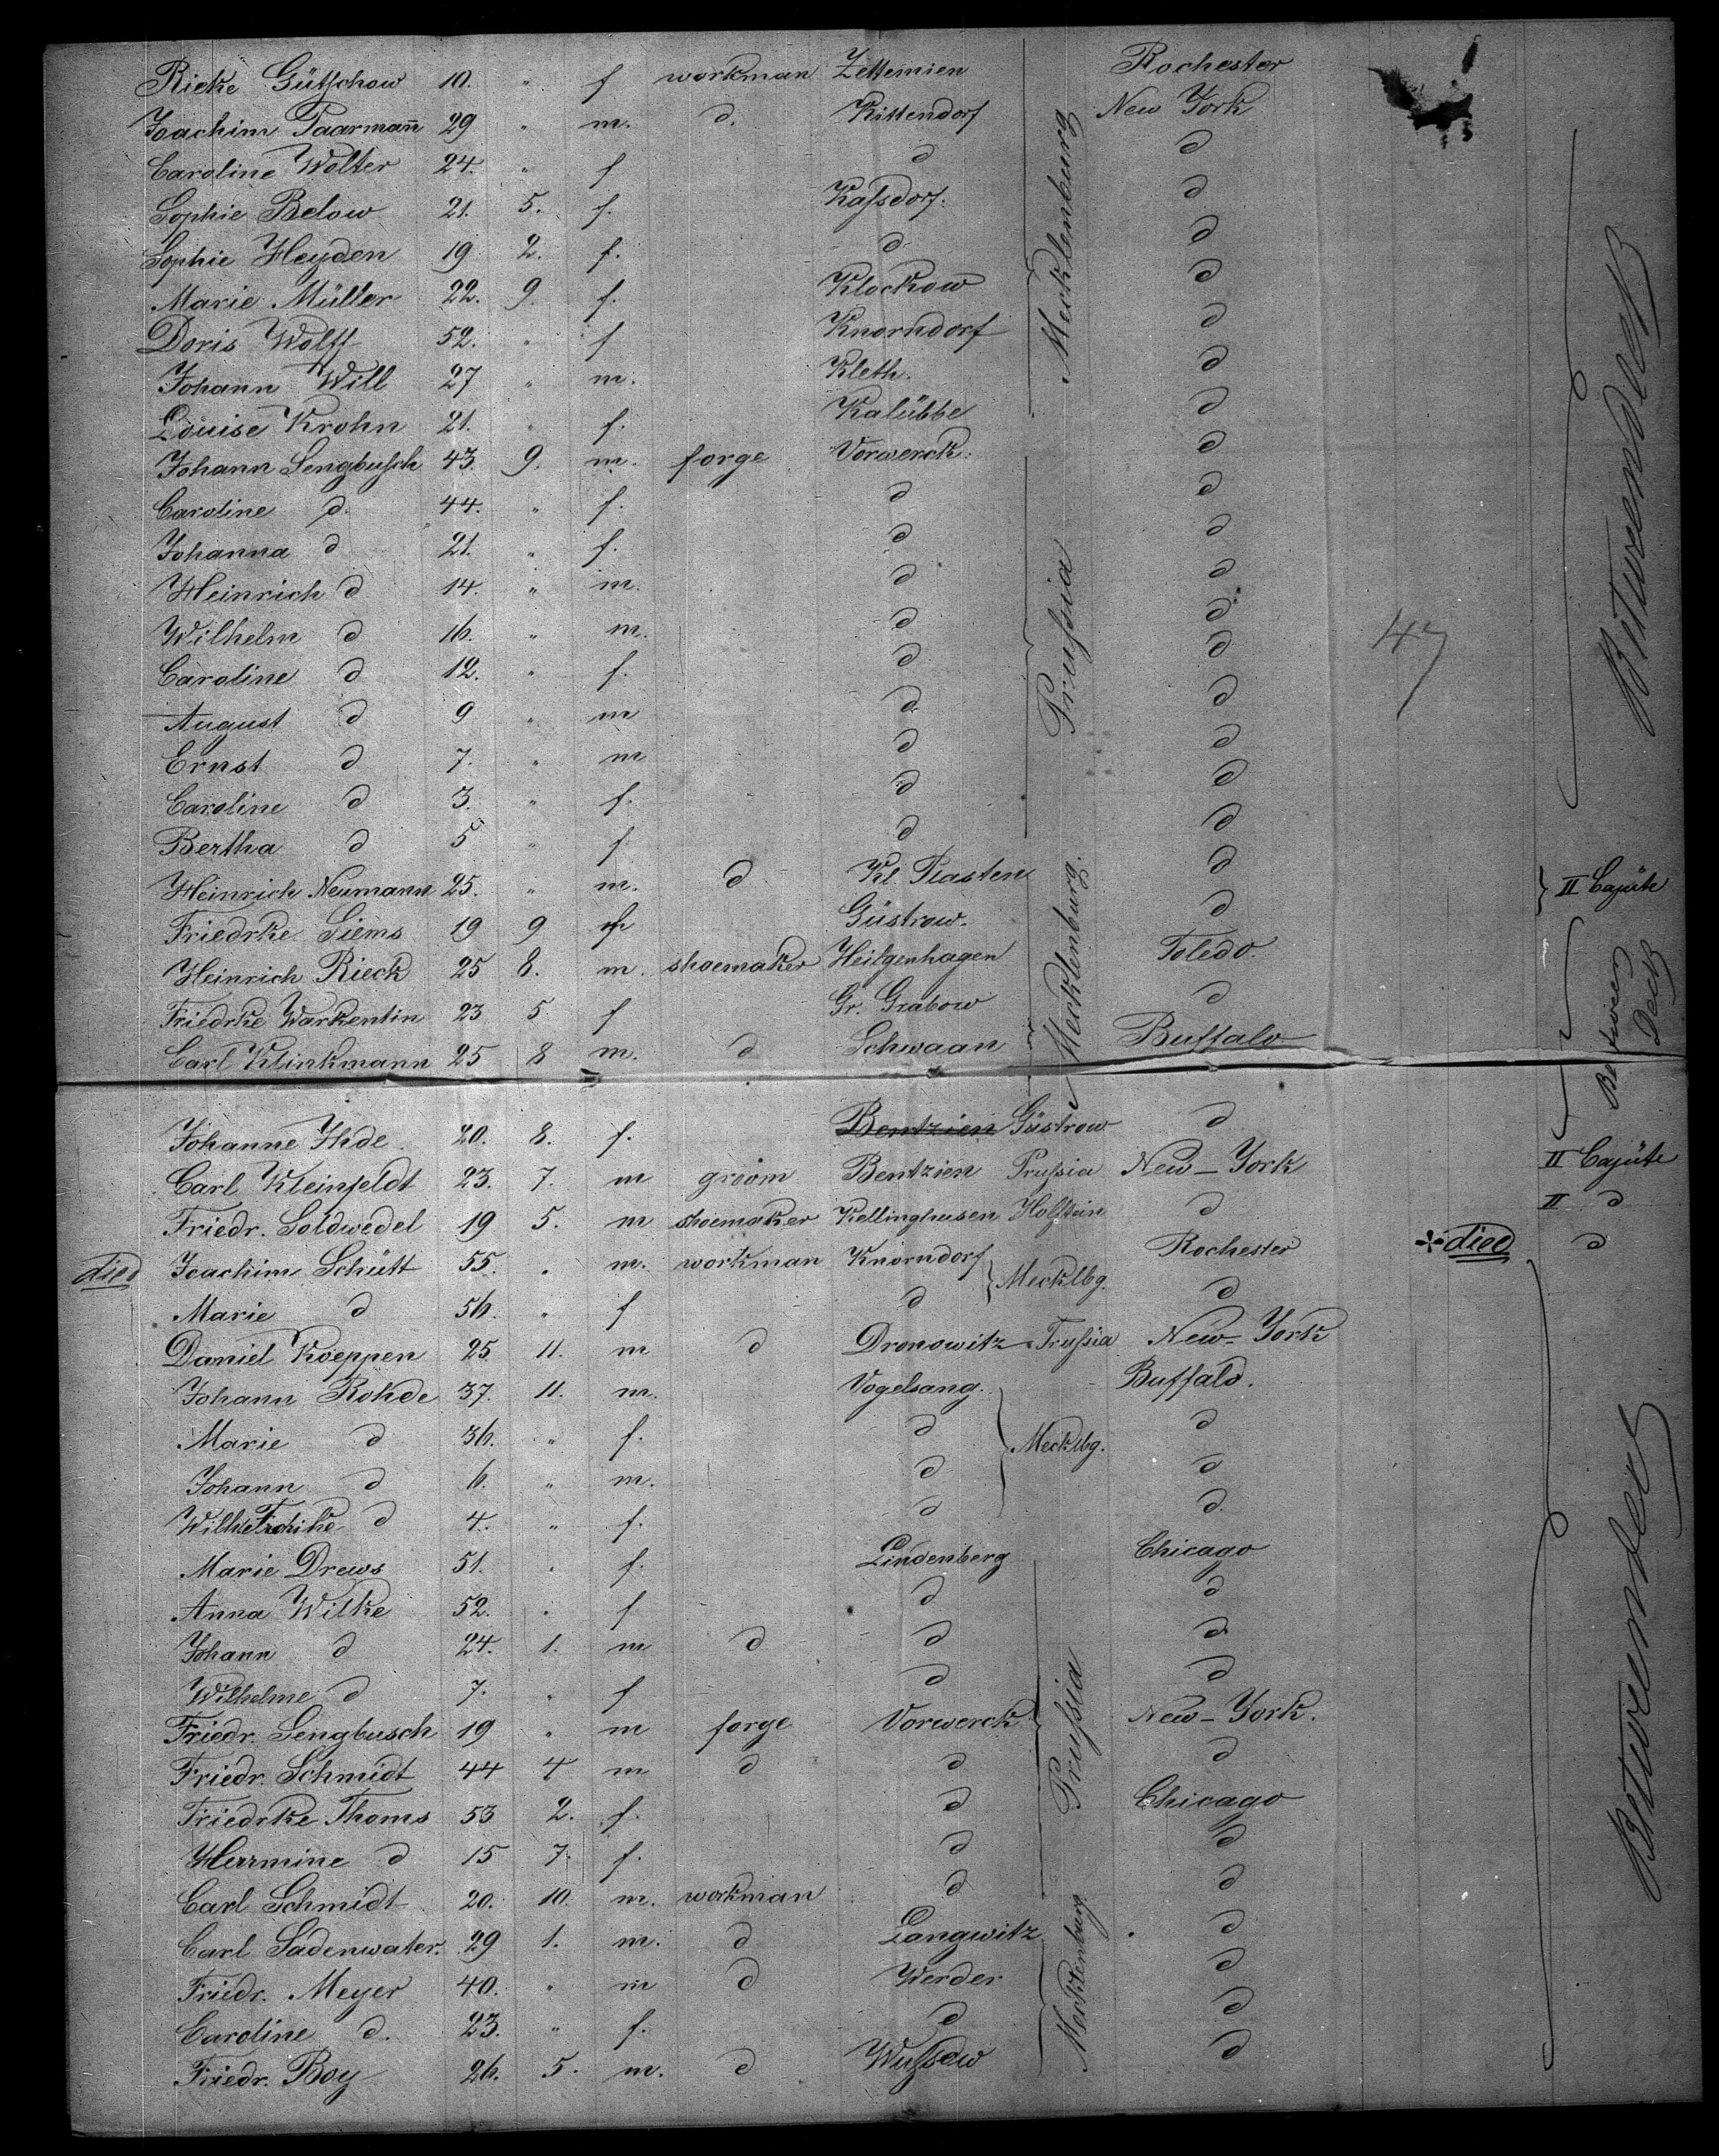 Rieke Gütschow 10. " f workman Zettemien Rochester
Joachim Paarmañ 29 " m. d. Kittendorf New York
Caroline Wolter 24. " f d d
Sophie Below 21. 5. f. Kaſsdorf. d
Sophie Heyden 19 2. f. d d
Marie Müller 22. 9 f. Klockow d
Doris Wolff 52. " f Knorndorf d
Johann Will 27 " m. Kleth. d
Louise Krohn 21. " f. Kalübbe d
Mecklenburg
Johann Lengbusch 43. 9. m. forge Vorwerck. d
Caroline d. 44. " f. d d
Johanna d 21. " f. d d
Heinrich d 14. " m. d d
Wilhelm d 16. " m. d d
Caroline d 12. " f. d d
47
August d 9 " m d d
Ernst d 7. " m d d
Caroline d 3. " f. d d
Bertha d 5 " f d d
Pruſsia
Betweendeck
Heinrich Neumann 25. " m. d Kl. Plasten d II Cajüte
Friedrke Siems 19 9 f Güstrow. d
Heinrich Rieck 25 8. m. shoemaker Heilgenhagen Toledo.
Friedrke Warkentin 23 5. f Gr. Grabow d
Carl Klinkmann 25 8 m. d Schwaan Buffalo
Mecklenburg.
Between Deck
Johanne Ihde 20. 8. f. Bentzien Güstrow d
Carl Kleinfeldt 23. 7. m groom Bentzien Pruſsia New-York II Cajüte
Friedr. Soldwedel 19 5. m shoemaker Kellinghusen Holstein d II d
died Joachim Schütt 55. " m. workman Knorndorf Mecklbg. Rochester died d
Marie d 56. " f d d
Daniel Koeppen 25. 11. m d Dronowitz Pruſsia New-York
Johann Rohde 37. 11. m. Vogelsang. Mecklbg. Buffalo.
Marie d 36. " f. d d
Johann d 6. " m. d d
d 4. " f. d d
Marie Drews 51. " f. Lindenberg Chicago
Anna Wilke 52. " f d d
Johann d 24. 1. m d d d
Wilhelme d 7. " f d d
Friedr. Lengbusch 19 " m forge Vorwerck New-York.
Friedr. Schmidt 44 4 m d d d
Friedrke Thoms 53 2. f. d Chicago
Hermine d 15 7. f. d d
Carl Schmidt 20. 10. m. workman d d
Pruſsia
Carl Ladenwater. 29 1. m. d Langwitz d
Friedr. Meyer 40. " m d Werder d
Caroline d. 23. " f. d d
Friedr. Boy 26. 5. m. d Wuſsow d
Mecklenburg
Betweendeck